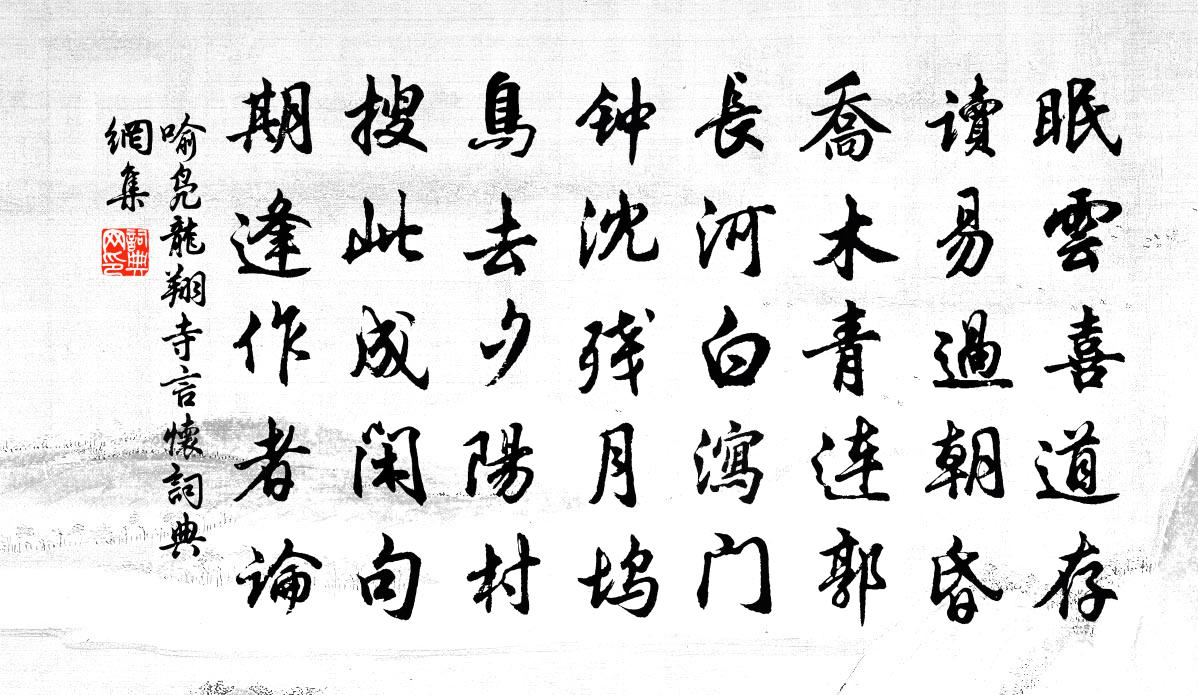 眠雲喜道存
讀易過朝昏
喬木青連郭
長河白瀉门
钟沈残月坞
鳥去夕陽村
搜此成閑句
期逢作者論
喻凫龍翔寺言懷詞典
網集
詞典
网印